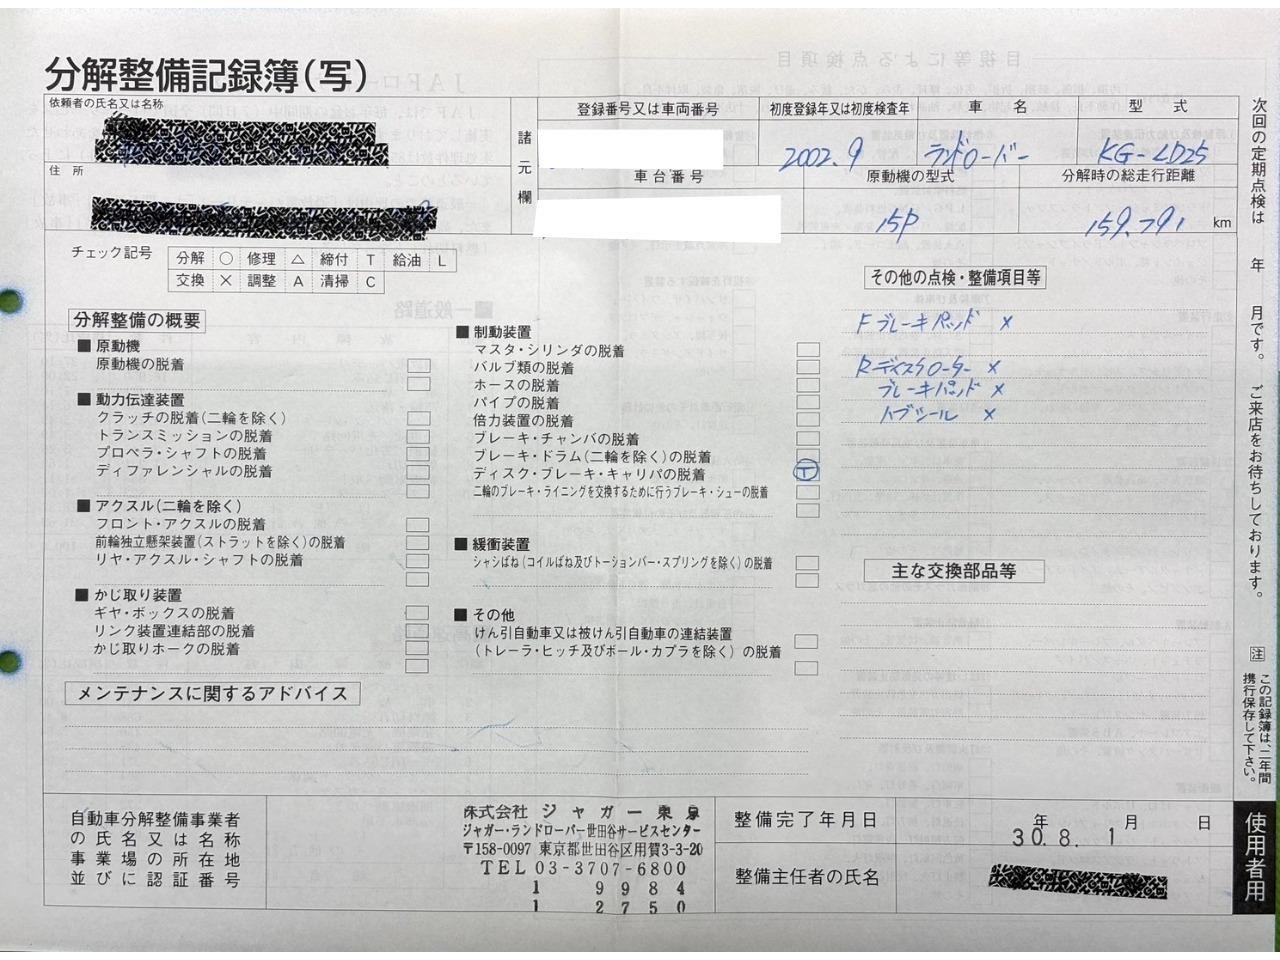 分解整備記録簿(写)
依頼者の氏名又は名称
住 所
諸元欄
登録番号又は車両番号
初度登録年又は初度検査年
2002.9
車 名
ランドローバー
型 式
KG-LD25
車台番号
原動機の型式
15P
分解時の総走行距離
159,791 km
チェック記号
分解 ○ 修理 △ 締付 T 給油 L
交換 × 調整 A 清掃 C
分解整備の概要
■ 原動機
原動機の脱着
■ 動力伝達装置
クラッチの脱着(二輪を除く)
トランスミッションの脱着
プロペラ・シャフトの脱着
ディファレンシャルの脱着
■ アクスル(二輪を除く)
フロント・アクスルの脱着
前輪独立懸架装置(ストラットを除く)の脱着
リヤ・アクスル・シャフトの脱着
■ かじ取り装置
ギヤ・ボックスの脱着
リンク装置連結部の脱着
かじ取りホークの脱着
■ 制動装置
マスタ・シリンダの脱着
バルブ類の脱着
ホースの脱着
パイプの脱着
倍力装置の脱着
ブレーキ・チャンバの脱着
ブレーキ・ドラム(二輪を除く)の脱着
ディスク・ブレーキ・キャリパの脱着 T
二輪のブレーキ・ライニングを交換するために行うブレーキ・シューの脱着
■ 緩衝装置
シャシばね(コイルばね及びトーションバー・スプリングを除く)の脱着
■ その他
けん引自動車又は被けん引自動車の連結装置
(トレーラ・ヒッチ及びボール・カプラを除く)の脱着
その他の点検・整備項目等
Fブレーキパッド ×
Rディスクローター ×
ブレーキパッド ×
ハブシール ×
主な交換部品等
メンテナンスに関するアドバイス
自動車分解整備事業者
の氏名又は名称
事業場の所在地
並びに認証番号
株式会社 ジャガー東京
ジャガー・ランドローバー世田谷サービスセンター
〒158-0097 東京都世田谷区用賀3-3-20
TEL 03-3707-6800
1 9984
1 2750
整備完了年月日
年 月 日
30.8.1
整備主任者の氏名
次回の定期点検は 年 月です。ご来店をお待ちしております。
注 この記録簿は、二年間
携行保存して下さい。
使用者用